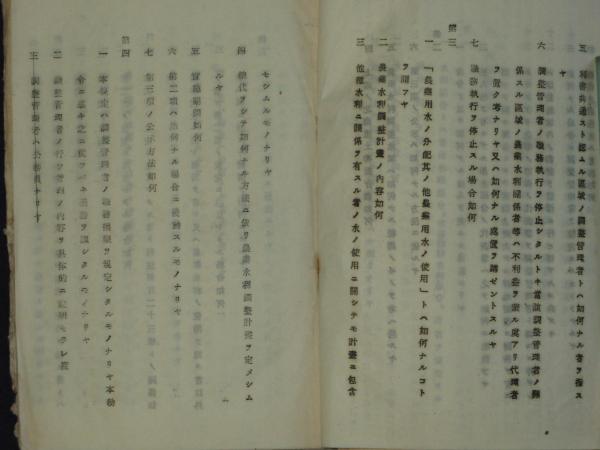 五 利害共通スト認ムル区域ノ調整管理者トハ如何ナル者ヲ指ス
ヤ
六 調整管理者ノ職務執行ヲ停止シタルトキ當該調整管理者ノ
係スル區域ノ農業水利關係者等ハ不利益ヲ蒙ル虞アリ代理者
ヲ置ク考ナリヤ又ハ如何ナル處置ヲ講ゼントスルヤ
七 職務執行ヲ停止スル場合如何
第三
一 「農業用水ノ分配其ノ他農業用水ノ使用」トハ如何ナルコト
ヲ謂フヤ
二 農業水利調整計畫ノ内容如何
三 他種水利ニ關係ヲ有スル者ノ水ノ使用ニ關シテモ計畫ニ包含
モシムルモノナリヤ
四 ヲシテ如何ナル方法ニ依リ農業水利調整計畫ヲ定メシム
ルヤ
五 實施期間如何
六 第二項ハ如何ナル場合ニ發動スルモノナリヤ
七 第三項ノ公示方法如何
第四
一 本規定ハ調整管理者ノ職務權限ヲ規定シタルモノナリヤ本勅
令ニ基キ之ニ從フベキ義務ヲ課シタルモノナリヤ
二 調整管理者ノ行フ ノ内容ヲ具體的ニ説明セラレ度
三 調整管理者ハ公務員ナリヤ